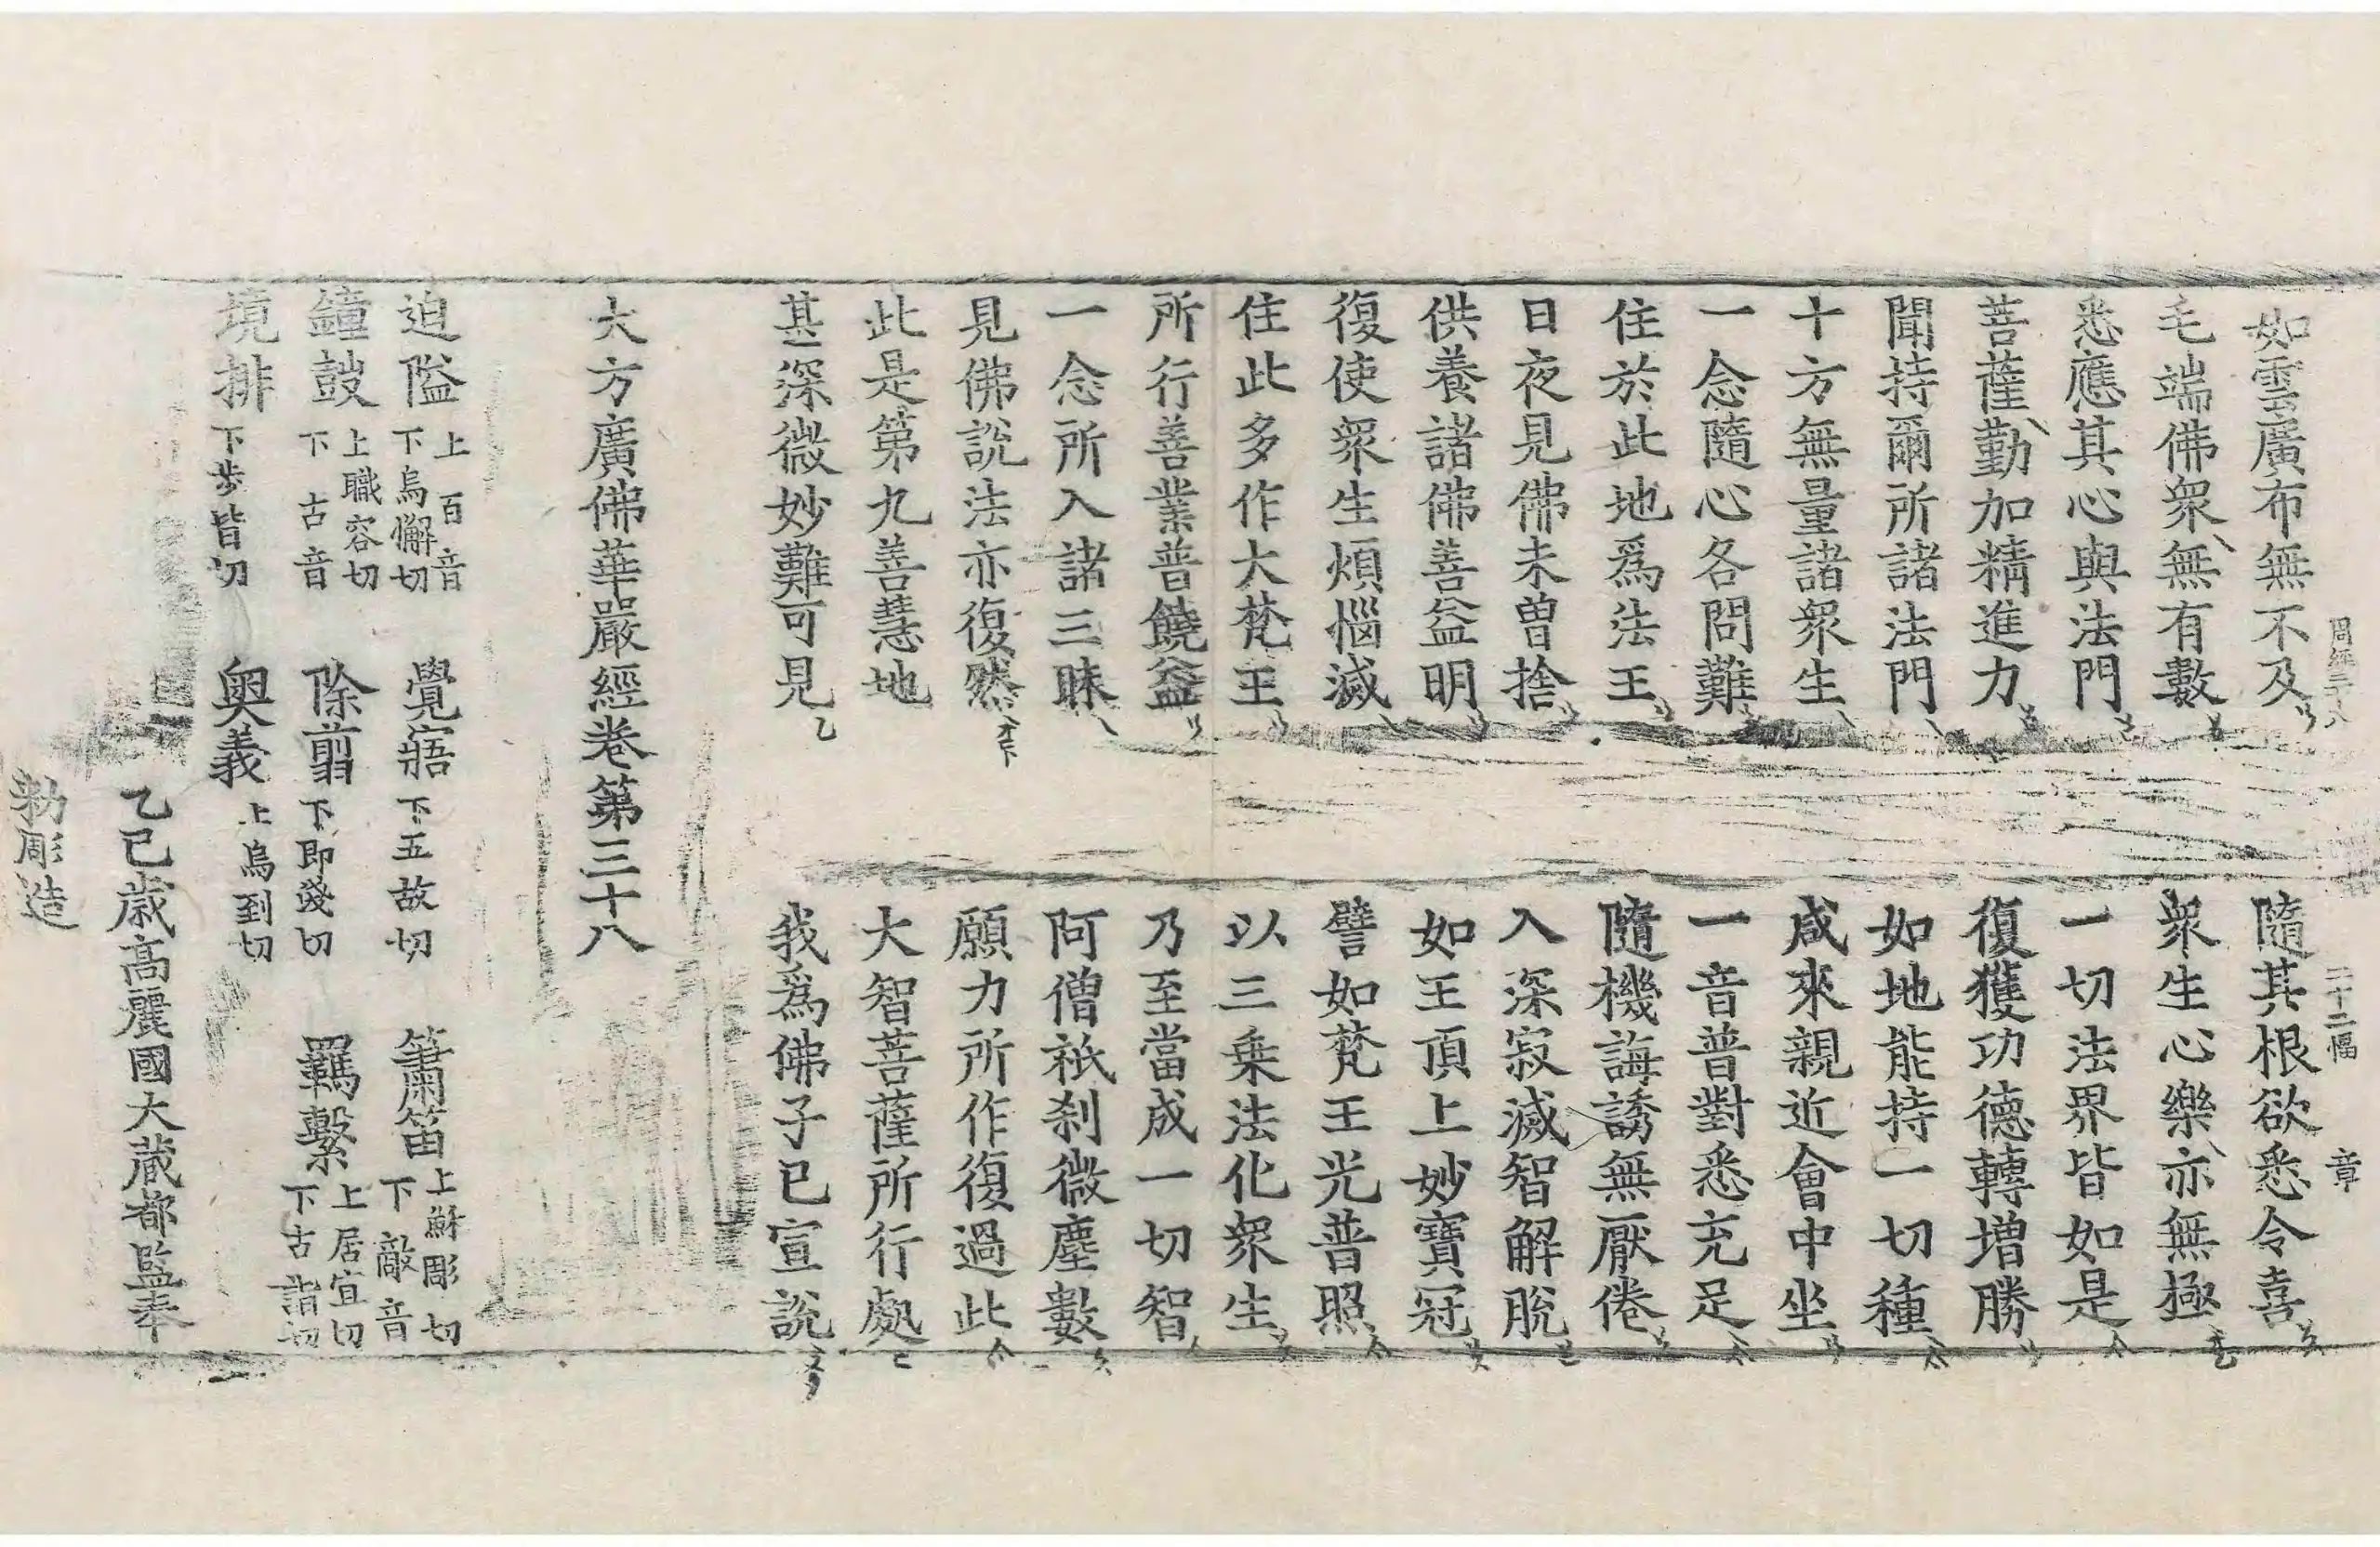 周經三十八　二十二幅　章
如雲廣布無不及　隨其根欲悉令喜
毛端佛衆無有數　衆生心樂亦無極
悉應其心與法門　一切法界皆如是
菩薩勤加精進力　復獲功德轉增勝
聞持爾所諸法門　如地能持一切種
十方無量諸衆生　咸來親近會中坐
一念隨心各問難　一音普對悉充足
住於此地爲法王　隨機誨誘無厭倦
日夜見佛未曾捨　入深寂滅智解脫
供養諸佛善益明　如王頂上妙寶冠
復使衆生煩惱滅　譬如梵王光普照
住此多作大梵王　以三乘法化衆生
所行善業普饒益　乃至當成一切智
一念所入諸三昧　阿僧祇刹微塵數
見佛說法亦復然　願力所作復過此
此是第九善慧地　大智菩薩所行處
甚深微妙難可見　我爲佛子已宣說
大方廣佛華嚴經卷第三十八
迫隘 上百音 下烏懈切　覺寤 下五故切　簫笛 上蘇彫切 下敵音
鐘鼓 上職容切 下古音　除翦 下即淺切　羈繫 上居宜切 下古詣切
境排 下步皆切　奧義 上烏到切
乙巳歲高麗國大藏都監奉
勅彫造